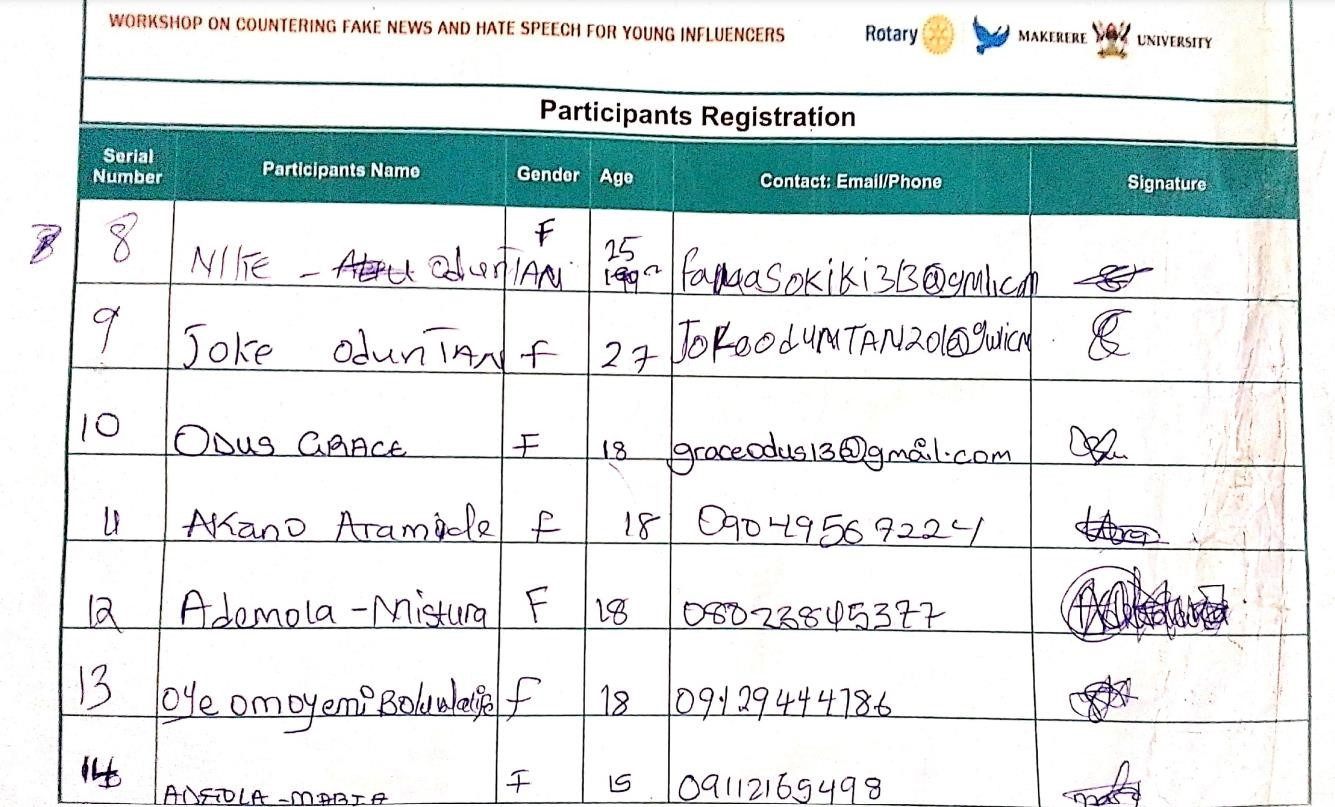 WORKSHOP ON COUNTERING FAKE NEWS AND HATE SPEECH FOR YOUNG INFLUENCERS Rotary MAKERERE UNIVERSITY
Participants Registration
Serial Number Participants Name Gender Age Contact: Email/Phone Signature
8 NIKE - OdunTAN F 25
9 Joke OdunTAN F 27
10 ODUS GRACE F 18 graceodus13@gmail.com
11 AKano Aramide F 18 09049567224
12 Ademola - Mistura F 18 08023845377
13 Oye omoyemi F 18 09129444786
14 F 15 09112165498